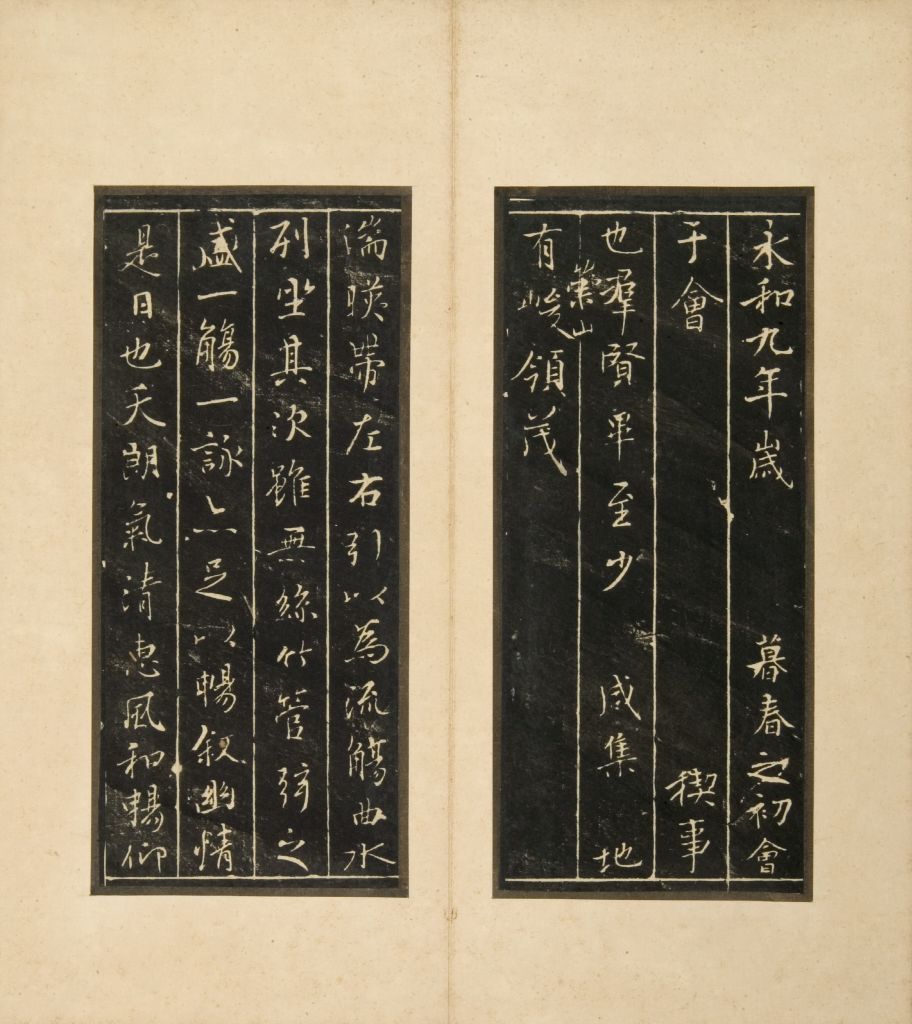 永和九年歲 暮春之初會
于會 稧事
也羣賢畢至少 咸集 地
有崇山峻領茂
湍暎帶左右引以為流觴曲水
列坐其次雖無絲竹管弦之
盛一觴一詠亦足以暢叙幽情
是日也天朗氣清惠風和暢仰